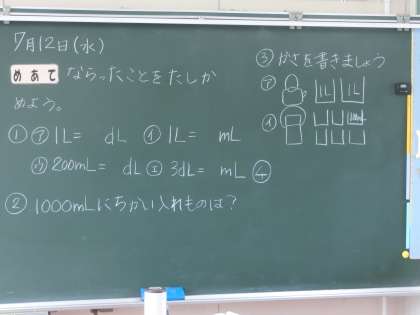 7月12日(水)
めあて ならったことをたしか
めよう。
① ㋐ 1L= dL ㋑ 1L= mL
㋒ 200mL= dL ㋓ 3dL= mL
② 1000mLにちかい入れものは?
③ かさを書きましょう
㋐ 1L 1L
㋑